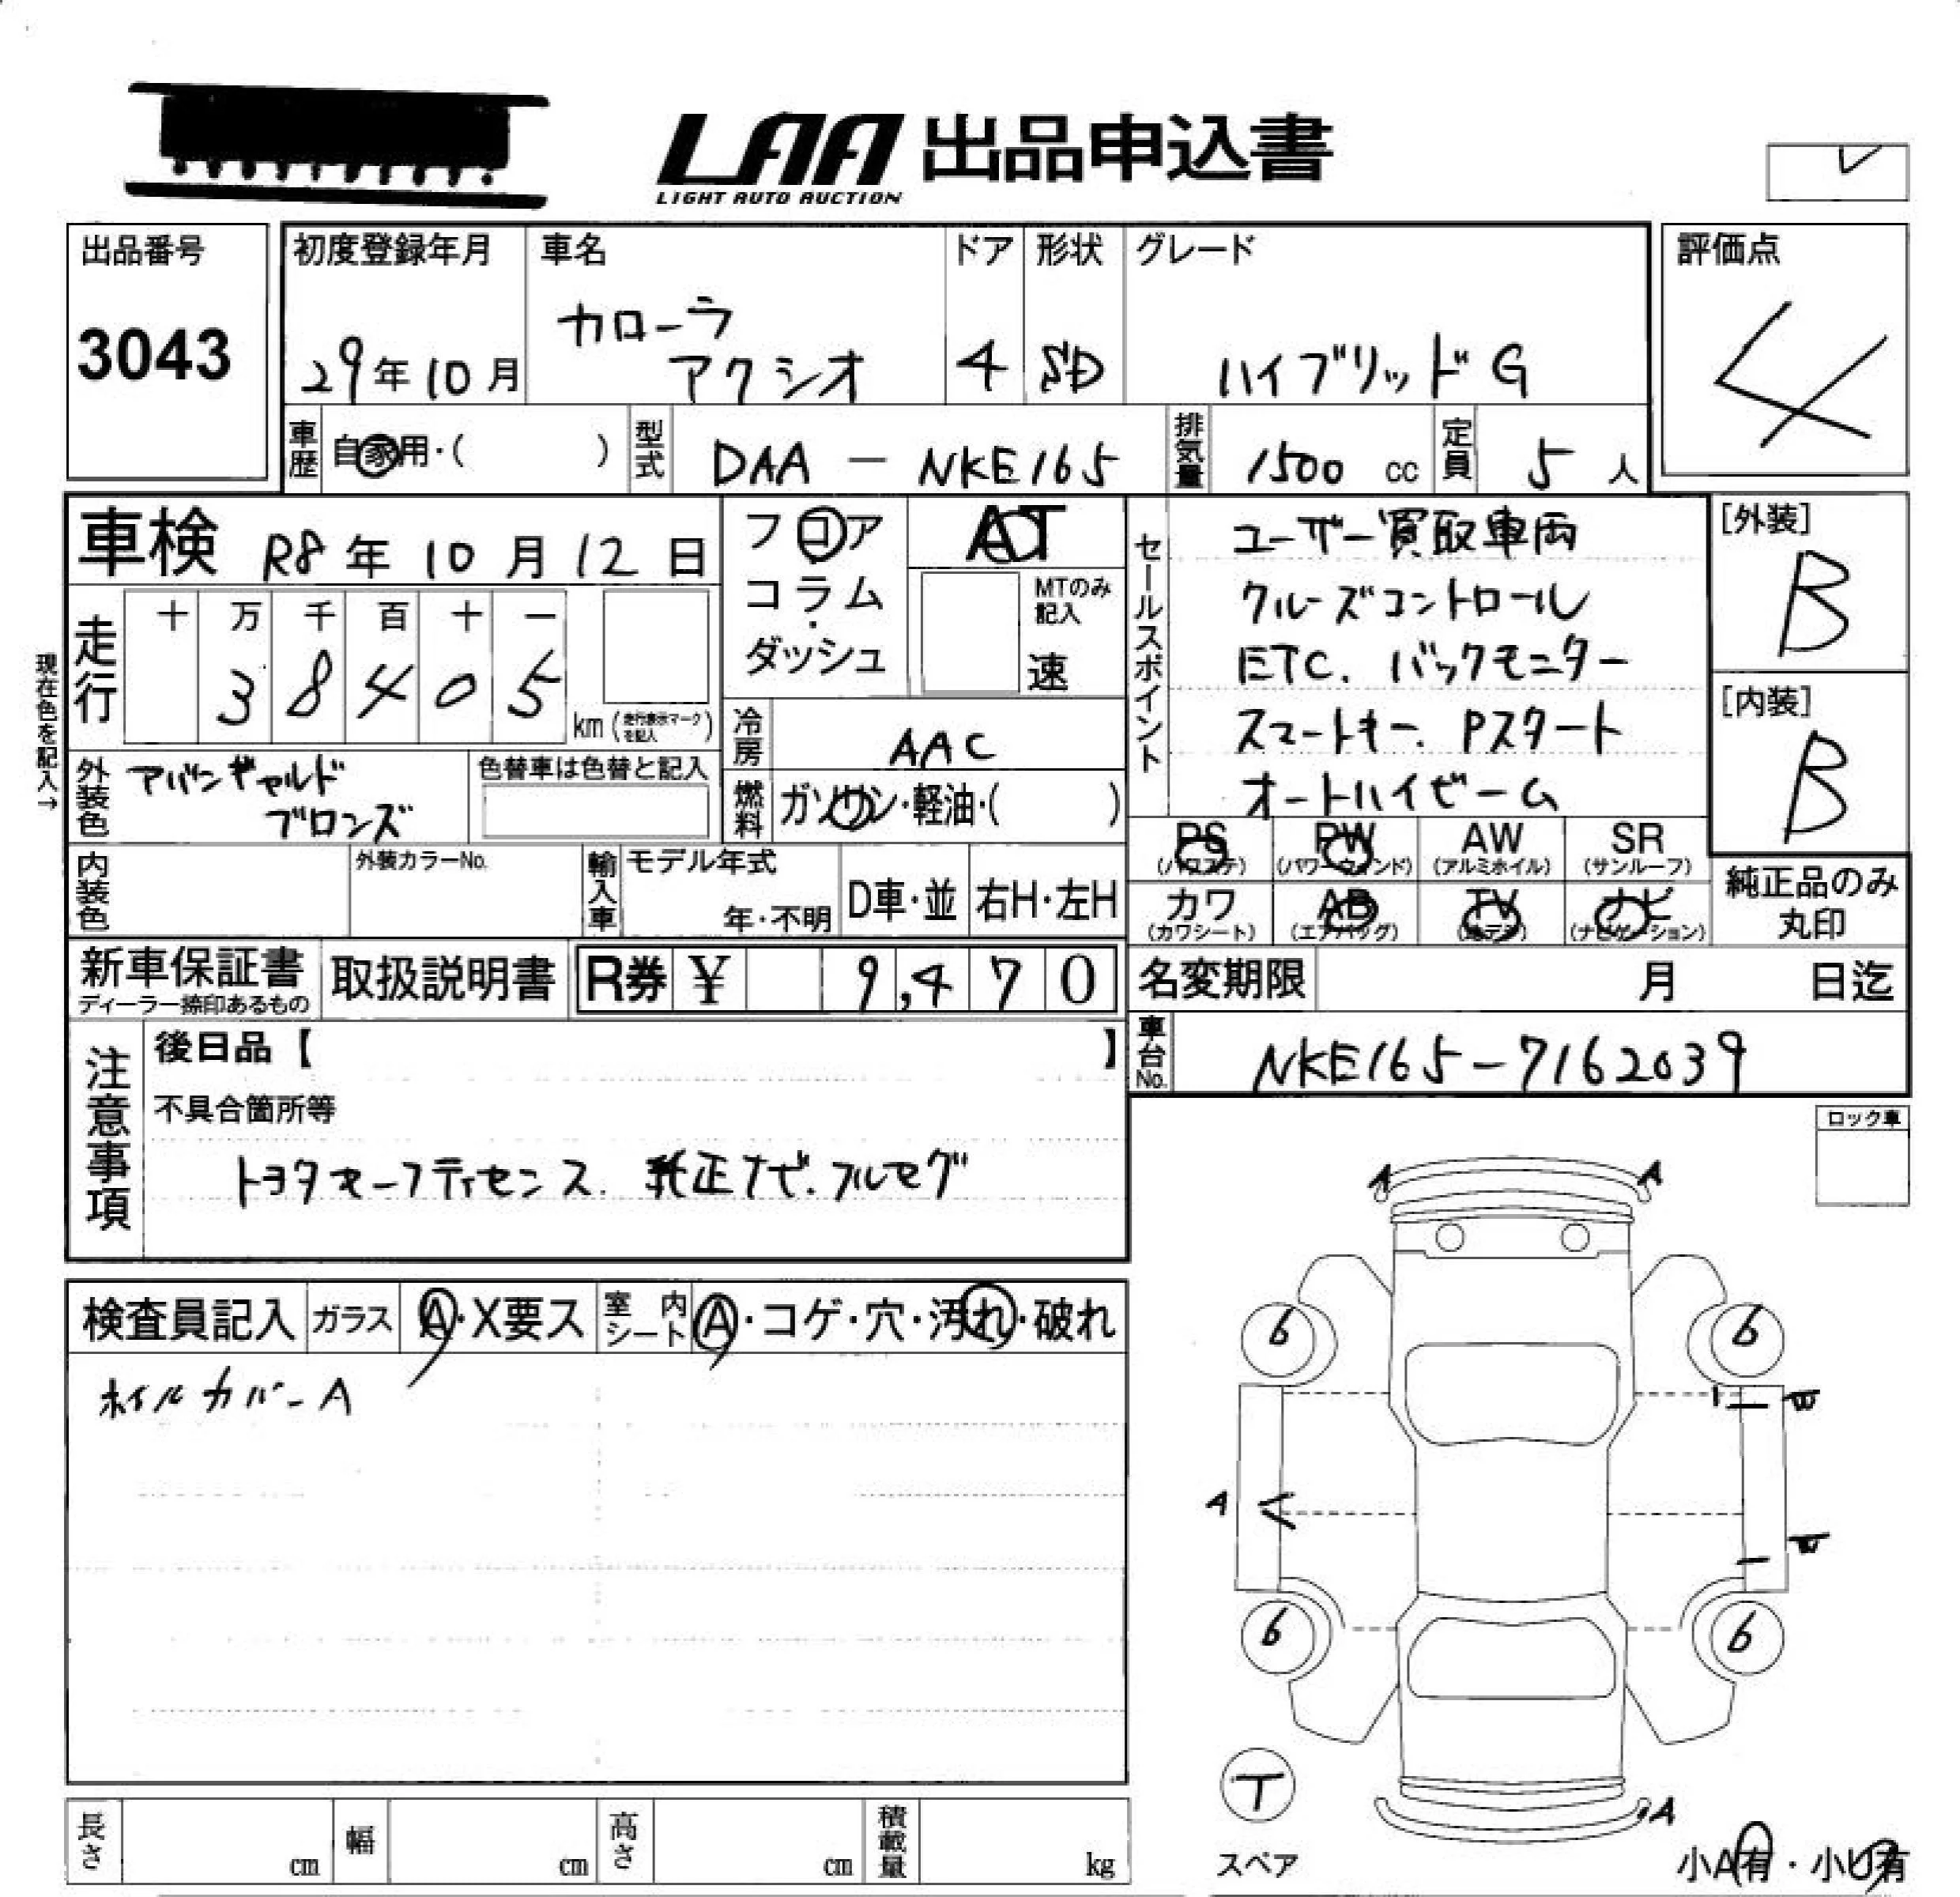 LAA 出品申込書
LIGHT AUTO AUCTION
出品番号
3043
初度登録年月
29年10月
車名
カローラ
アクシオ
ドア
4
形状
SD
グレード
ハイブリッド G
評価点
4
車歴
自家用・( )
型式
DAA - NKE165
排気量
1500 cc
定員
5 人
車検 R8年 10月 12日
フロア
コラム・
ダッシュ
AT
MTのみ
記入
速
セールスポイント
ユーザー買取車両
クルーズコントロール
ETC. バックモニター
スマートキー. Pスタート
オートハイビーム
[外装]
B
[内装]
B
現在色を記入→
走行
十 万 千 百 十 一
3 8 4 0 5
km (走行表示マークを記入)
冷房
AAC
外装色
アバンギャルド
ブロンズ
色替車は色替と記入
燃料
ガソリン・軽油・( )
PS
(パワステ)
PW
(パワーウィンド)
AW
(アルミホイル)
SR
(サンルーフ)
カワ
(カワシート)
AB
(エアバッグ)
TV
(地デジ)
ナビ
(ナビゲーション)
純正品のみ
丸印
内装色
外装カラーNo.
輸入車
モデル年式
年・不明
D車・並
右H・左H
新車保証書
ディーラー捺印あるもの
取扱説明書
R券 ¥ 9,470
名変期限 月 日迄
車台No.
NKE165-7162039
注意事項
後日品【 】
不具合箇所等
トヨタセーフティセンス. 純正ナビ. フルセグ
ロック車
検査員記入
ガラス
A・X要ス
室内シート
A・コゲ・穴・汚れ・破れ
ホイルカバーA
A A
6 6
A
6 6
T
スペア
A
小A有・小U有
長さ cm
幅 cm
高さ cm
積載量 kg